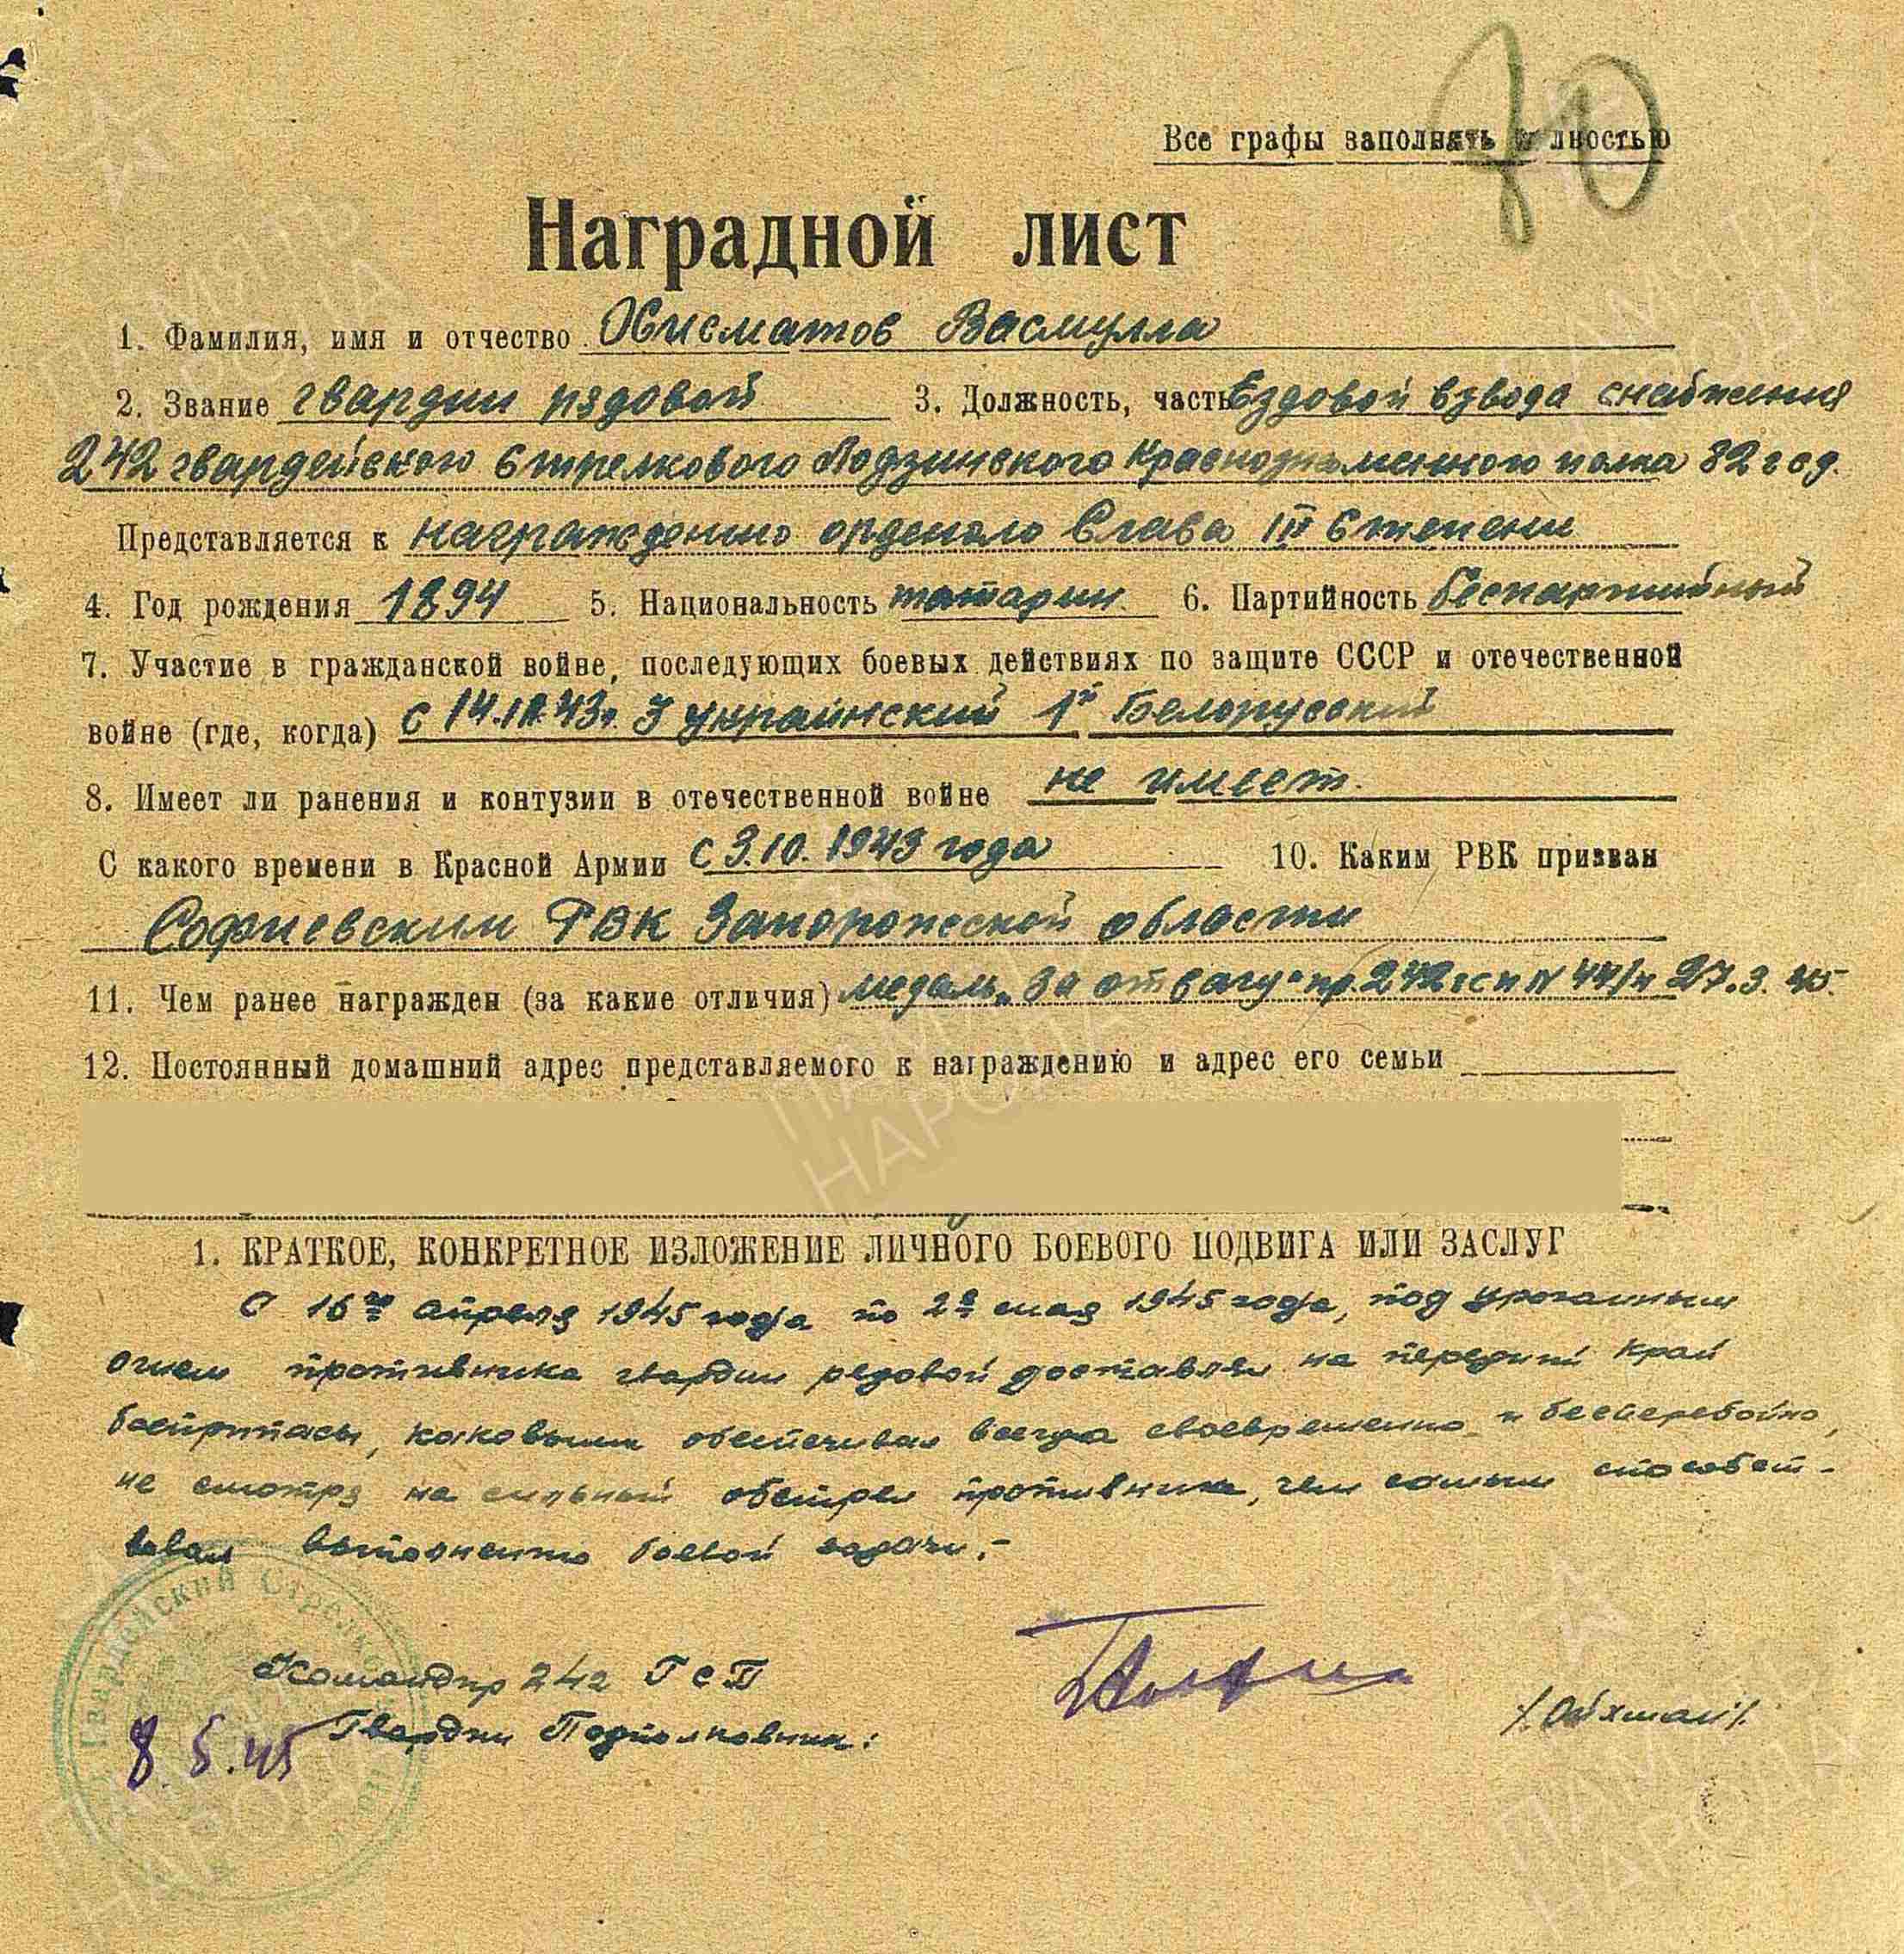 70
Все графы заполнять полностью
Наградной лист
1. Фамилия, имя и отчество Хисматов Васмулла
2. Звание гвардии рядовой 3. Должность, часть Ездовой взвода снабжения
242 гвардейского Стрелкового Лодзинского Краснознаменного полка 82 гсд.
Представляется к награждению орденом Слава III Степени
4. Год рождения 1894 5. Национальность татарин. 6. Партийность беспартийный
7. Участие в гражданской войне, последующих боевых действиях по защите СССР и отечественной
войне (где, когда) 3 украинский 1й Белорусский
8. Имеет ли ранения и контузии в отечественной войне не имеет.
С какого времени в Красной Армии с 3.10.1943 года 10. Каким РВК призван
Софиевским РВК Запорожской области
11. Чем ранее награжден (за какие отличия) медаль „За отвагу" пр. 242 гсп N 44/н 27.3.45.
12. Постоянный домашний адрес представляемого к награждению и адрес его семьи
1. КРАТКОЕ, КОНКРЕТНОЕ ИЗЛОЖЕНИЕ ЛИЧНОГО БОЕВОГО ПОДВИГА ИЛИ ЗАСЛУГ
С 16го апреля 1945 года по 2е мая 1945 года, под ураганным
огнем противника гвардии редовой доставлял на передний край
боеприпасы, каковыми обеспечивал всегда своевременно и бесперебойно,
не смотря на сильный обстрел противника, чем самым способст-
вовал выполнению боевой задачи.-
Гвардейский Стрелковый
Командир 242 ГСП
Гвардии Подполковник:
8.5.45
ПАМЯТЬ НАРОДА